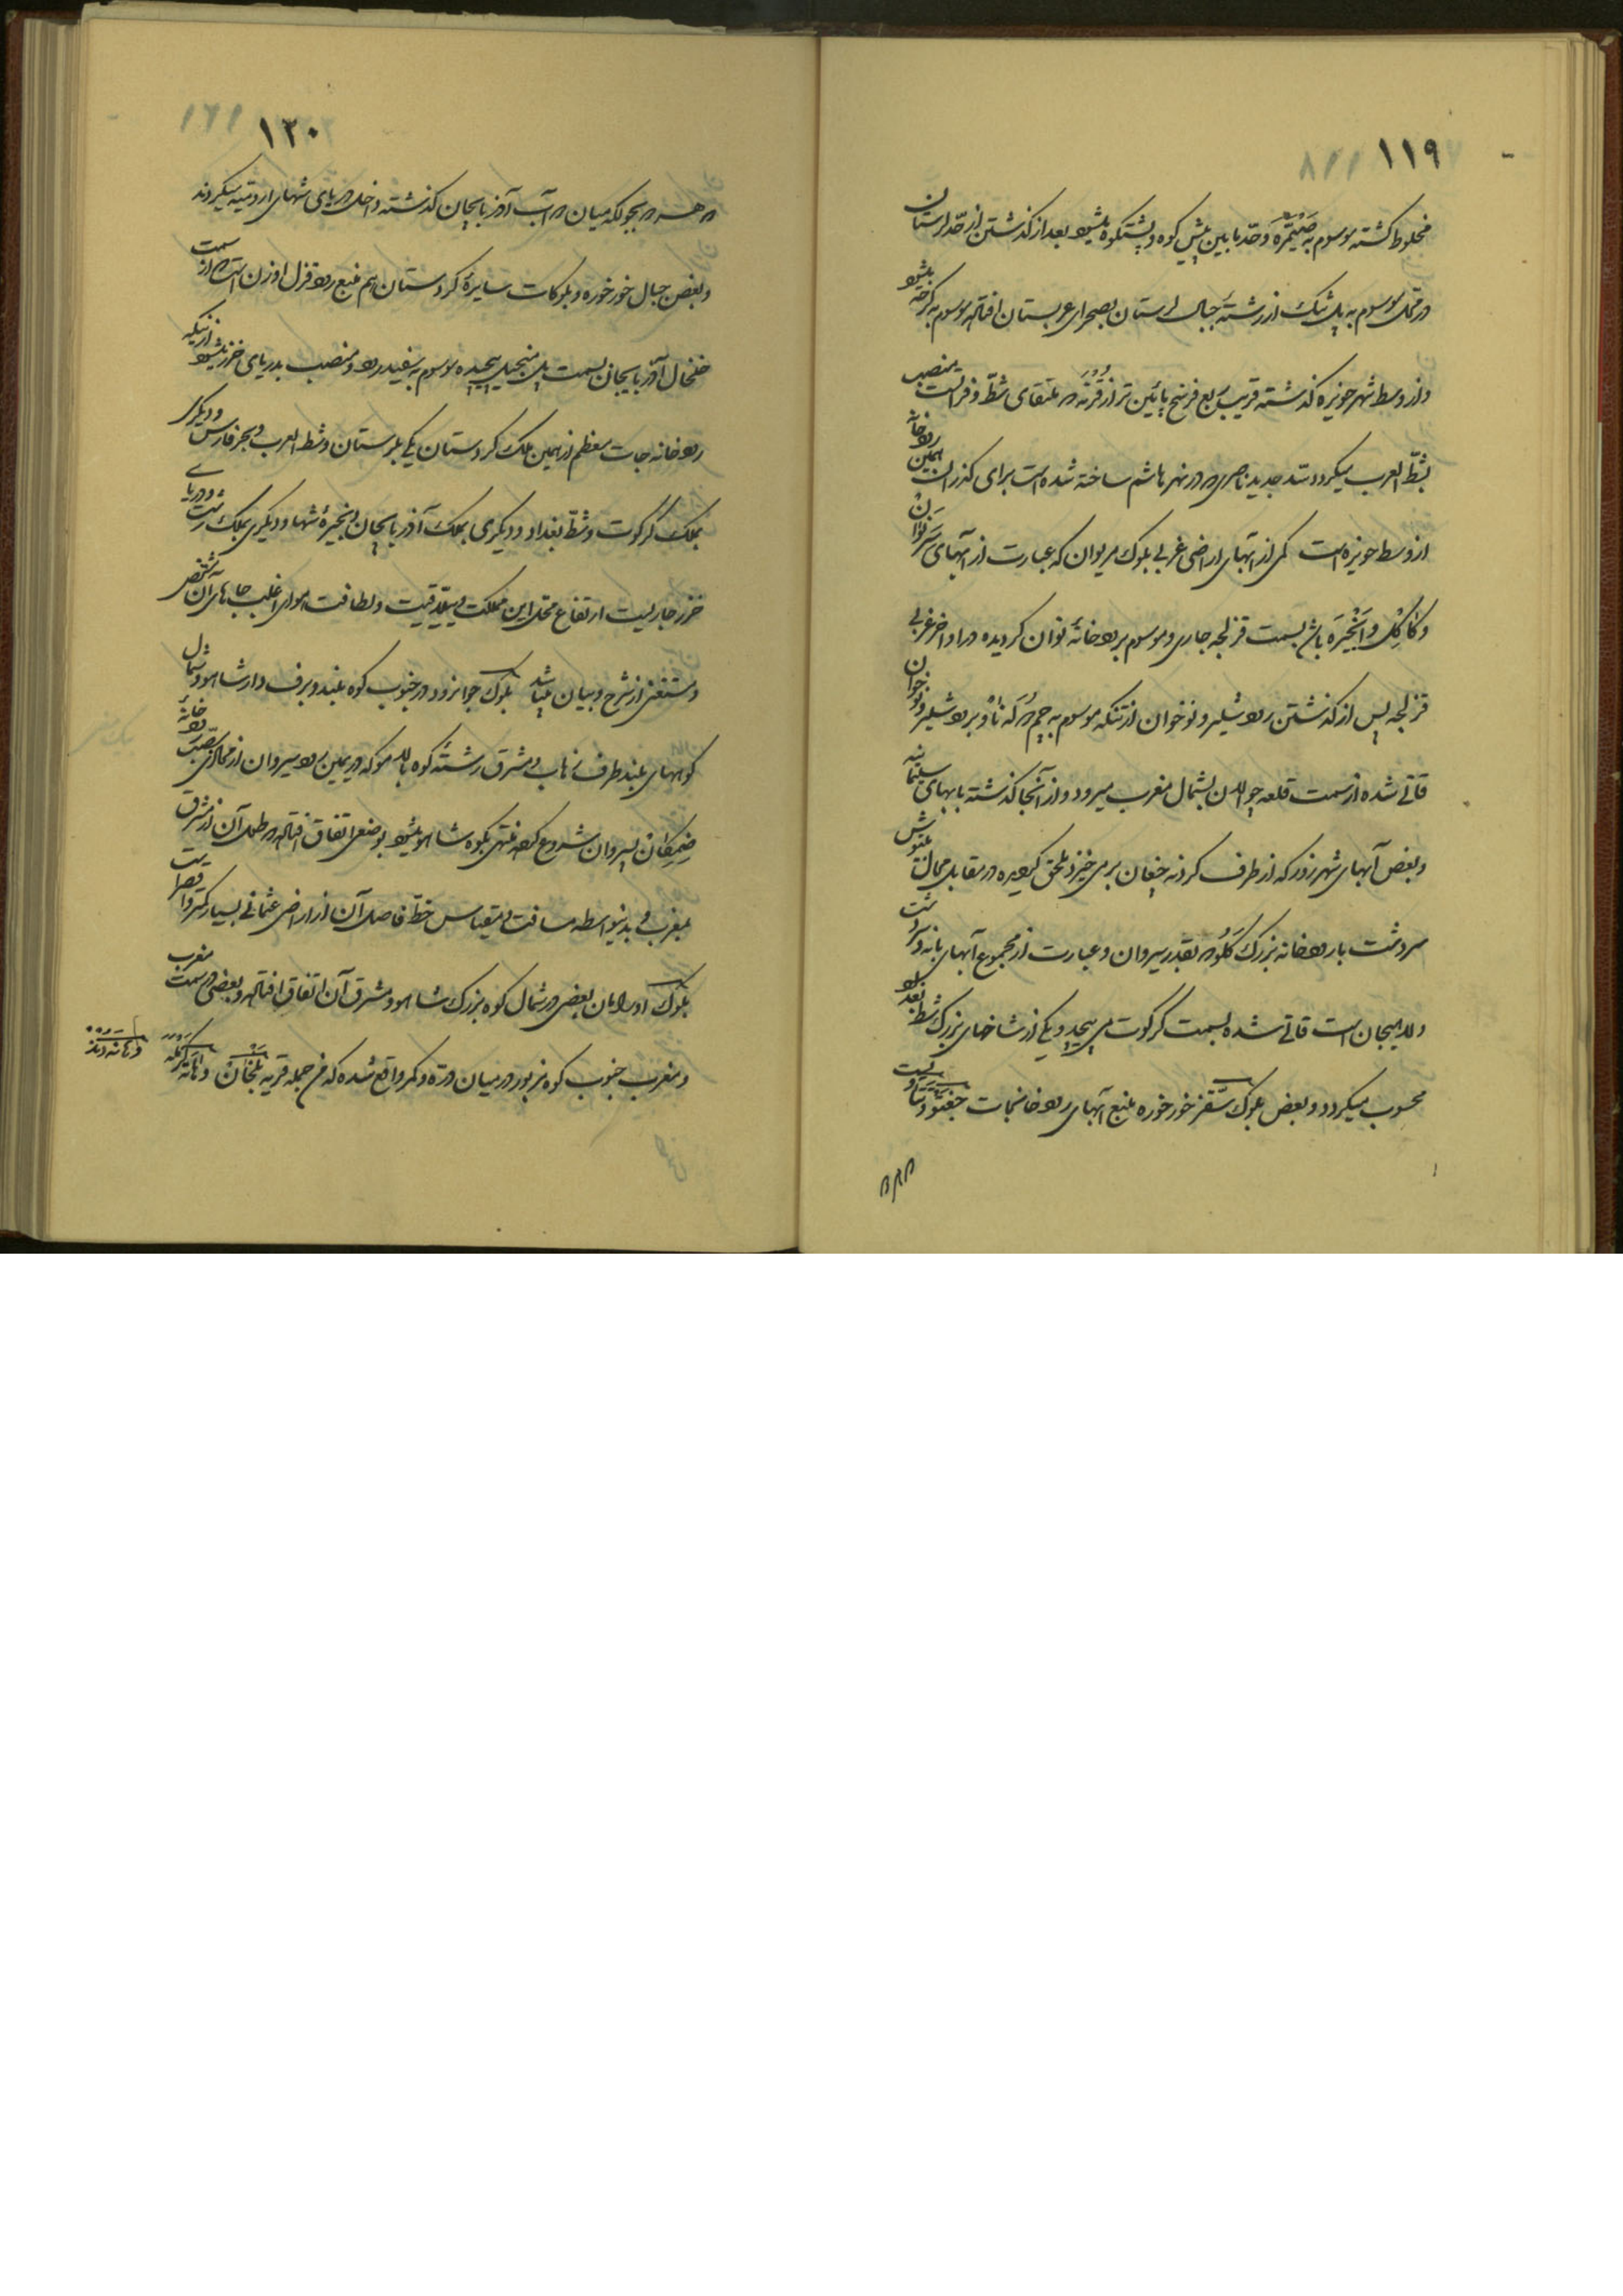 ١١٩
مخلوط گشته موسوم به صَیْمَرَه و حدّ ما بین پیش کوه و پشتکوه میشود بعد از گذشتن از حدّ لرستان
در محلی موسوم به پل تنک از رشتهٔ جبال لرستان بصحرای عربستان افتاده موسوم به کرخه میشود
و از وسط شهر حویزه گذشته قریب ربع فرسخ پائین تر از قُرنَه در ملتقای شطّ و فرات منصب
بشطّ العرب میگردد سدّ جدید ناصری در نهر هاشم ساخته شده است برای گذران همین رودخانه
از وسط حویزه است کمی از آبهای اراضی غربی بلوک مریوان که عبارت از آبهای
و کاکِل و اَنْجیرَه باش بسمت قزلجه جاری و موسوم برودخانهٔ نوان گردیده در اواخر غربی
قزلجه پس از گذشتن رود شلیر و نوخوان از تنکه موسوم به برود شلیر و نوخوان
قاتی شده از سمت قلعه چوالان بشمال مغرب میرود و از آنجا گذشته بابهای سلیمانیه
و بعض آبهای شهرزور که از طرف گردنه برمی خیزد ملحق گردیده در مقابل محال
سردشت با رودخانه بزرگ کَلْو که بقدر سیروان و عبارت از مجموع آبهای بانه و سردشت
و لاهیجان است قاتی شده بسمت کرکوت می پیچد و یکی از شاخهای بزرگ شط بغداد
محسوب میگردد و بعض بلوک سَقّز خورخوره منبع آبهای رودخانجات جغتو و تتاو است
١٢٠
که هر دو میان دو آب آذربایجان گذشته داخل دریای شهای ارومیه میگردند
و بعض جبال خورخوره و بلوکات سایرهٔ کردستان هم منبع رود قزل اوزن است که از سمت
خلخال آذربایجان بسمت پل منجیل پیچیده موسوم به سفیدرود و منصب بدریای خزر میشود از اینکه
رودخانه جات معظم از همین ملک کردستان یکی بلرستان و شط العرب و بحر فارس و دیگری
بملک کرکوت و شطّ بغداد و دیگری بملک آذربایجان و بحیرهٔ شها و دیگری بملک رشت و دریای
خزر جاریست ارتفاع محل این مملکت و لطافت هوای اغلب جاهای آن مشخص
و مستغنی از شرح و بیان میباشد بلوک جوانرود در جنوب کوه بلند و برف دار شاهو و شمال
کوههای بلند طرف زهاب و مشرق رشتهٔ کوه که در یمین رود سیروان از محاذی رودخانهٔ
سیروان شروع کرده منتهی بکوه شاهو میشود بوضعی اتفاق افتاده که طول آن از مشرق
بمغرب و بدینواسطه مسافت و مقیاس خطّ فاصل آن از اراضی عثمانی بسیار کم و
بلوک اورامان بعضی در شمال کوه بزرگ شاهو و مشرق آن اتفاق افتاده و بعضی در سمت مغرب
و مغرب جنوب کوه مزبور در میان درّه و کمر واقع شده که من جمله قریه